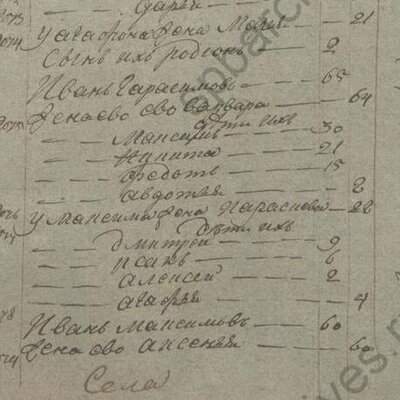 Дарья
у агафона жена Марья — 21
Сынъ ихъ родионъ — 2
Иванъ Гарасимовъ — 65
Жена ево Варвара — 64
дети ихъ
Максимъ — 30
Никита — 21
Федотъ — 15
авдотья — 2
у Максима жена Параскова — 28
дети ихъ
Дмитрей — 9
Исакъ — 6
Алексей — 2
агафья — 4
Иванъ Максимовъ — 60
Жена ево аксенья — 60
Села